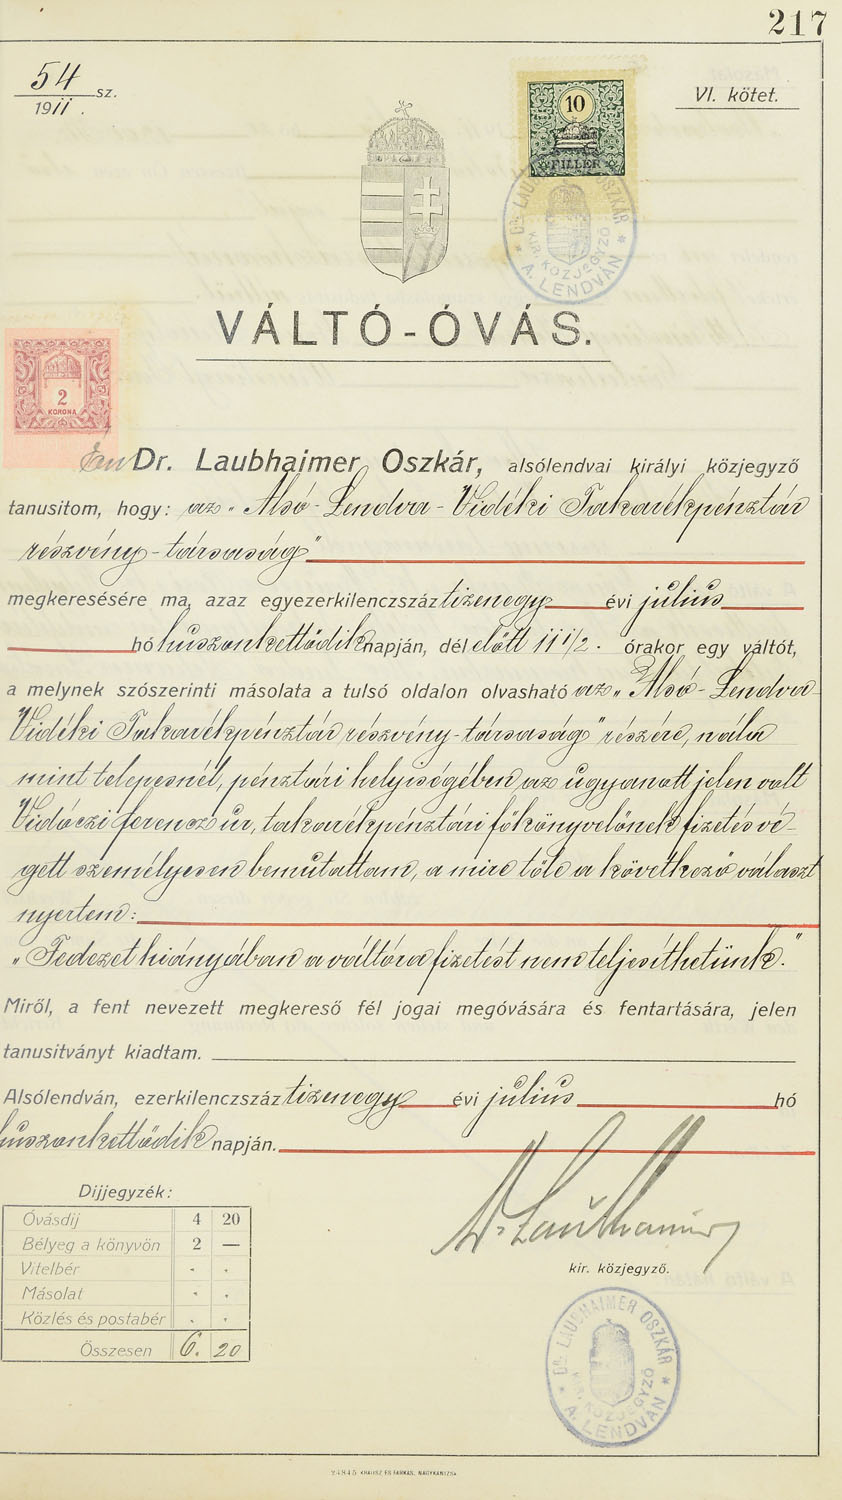 217
54 sz.
1911.
VI. kötet.
10
FILLER
Dr. LAUBHAIMER OSZKÁR
KIR. KÖZJEGYZŐ
A. LENDVÁN
VÁLTÓ-ÓVÁS.
2
KORONA
Én Dr. Laubhaimer Oszkár, alsólendvai királyi közjegyző
tanusitom, hogy: az „Alsó-Lendva-Vidéki Takarékpénztár
részvény-társaság”
megkeresésére ma, azaz egyezerkilenczszáz tizenegy évi július
hó huszonkettődik napján, dél előtt 11 1/2. órakor egy váltót,
a melynek szószerinti másolata a tulsó oldalon olvasható az „Alsó-Lendva-
Vidéki Takarékpénztár részvény-társaság” részére, nála
mint telepesnél, pénztári helyiségében az ugyanott jelen volt
Vidóczi Ferencz úr, takarékpénztári főkönyvelőnek fizetés vé-
gett személyesen bemutattam, a mire tőle a következő választ
nyertem:
„Fedezet hiányában a váltóra fizetést nem teljesíthetünk.”
Miről, a fent nevezett megkereső fél jogai megóvására és fentartására, jelen
tanusitványt kiadtam.
Alsólendván, ezerkilenczszáz tizenegy évi július hó
huszonkettődik napján.
Dijjegyzék:
Óvásdij 4 20
Bélyeg a könyvön 2 —
Vitelbér . .
Másolat . .
Közlés és postabér . .
Összesen 6. 20
Dr Laubhaimer
kir. közjegyző.
Dr. LAUBHAIMER OSZKÁR
KIR. KÖZJEGYZŐ
A. LENDVÁN
KRAUSZ ÉS FARKAS, NAGYKANIZSA